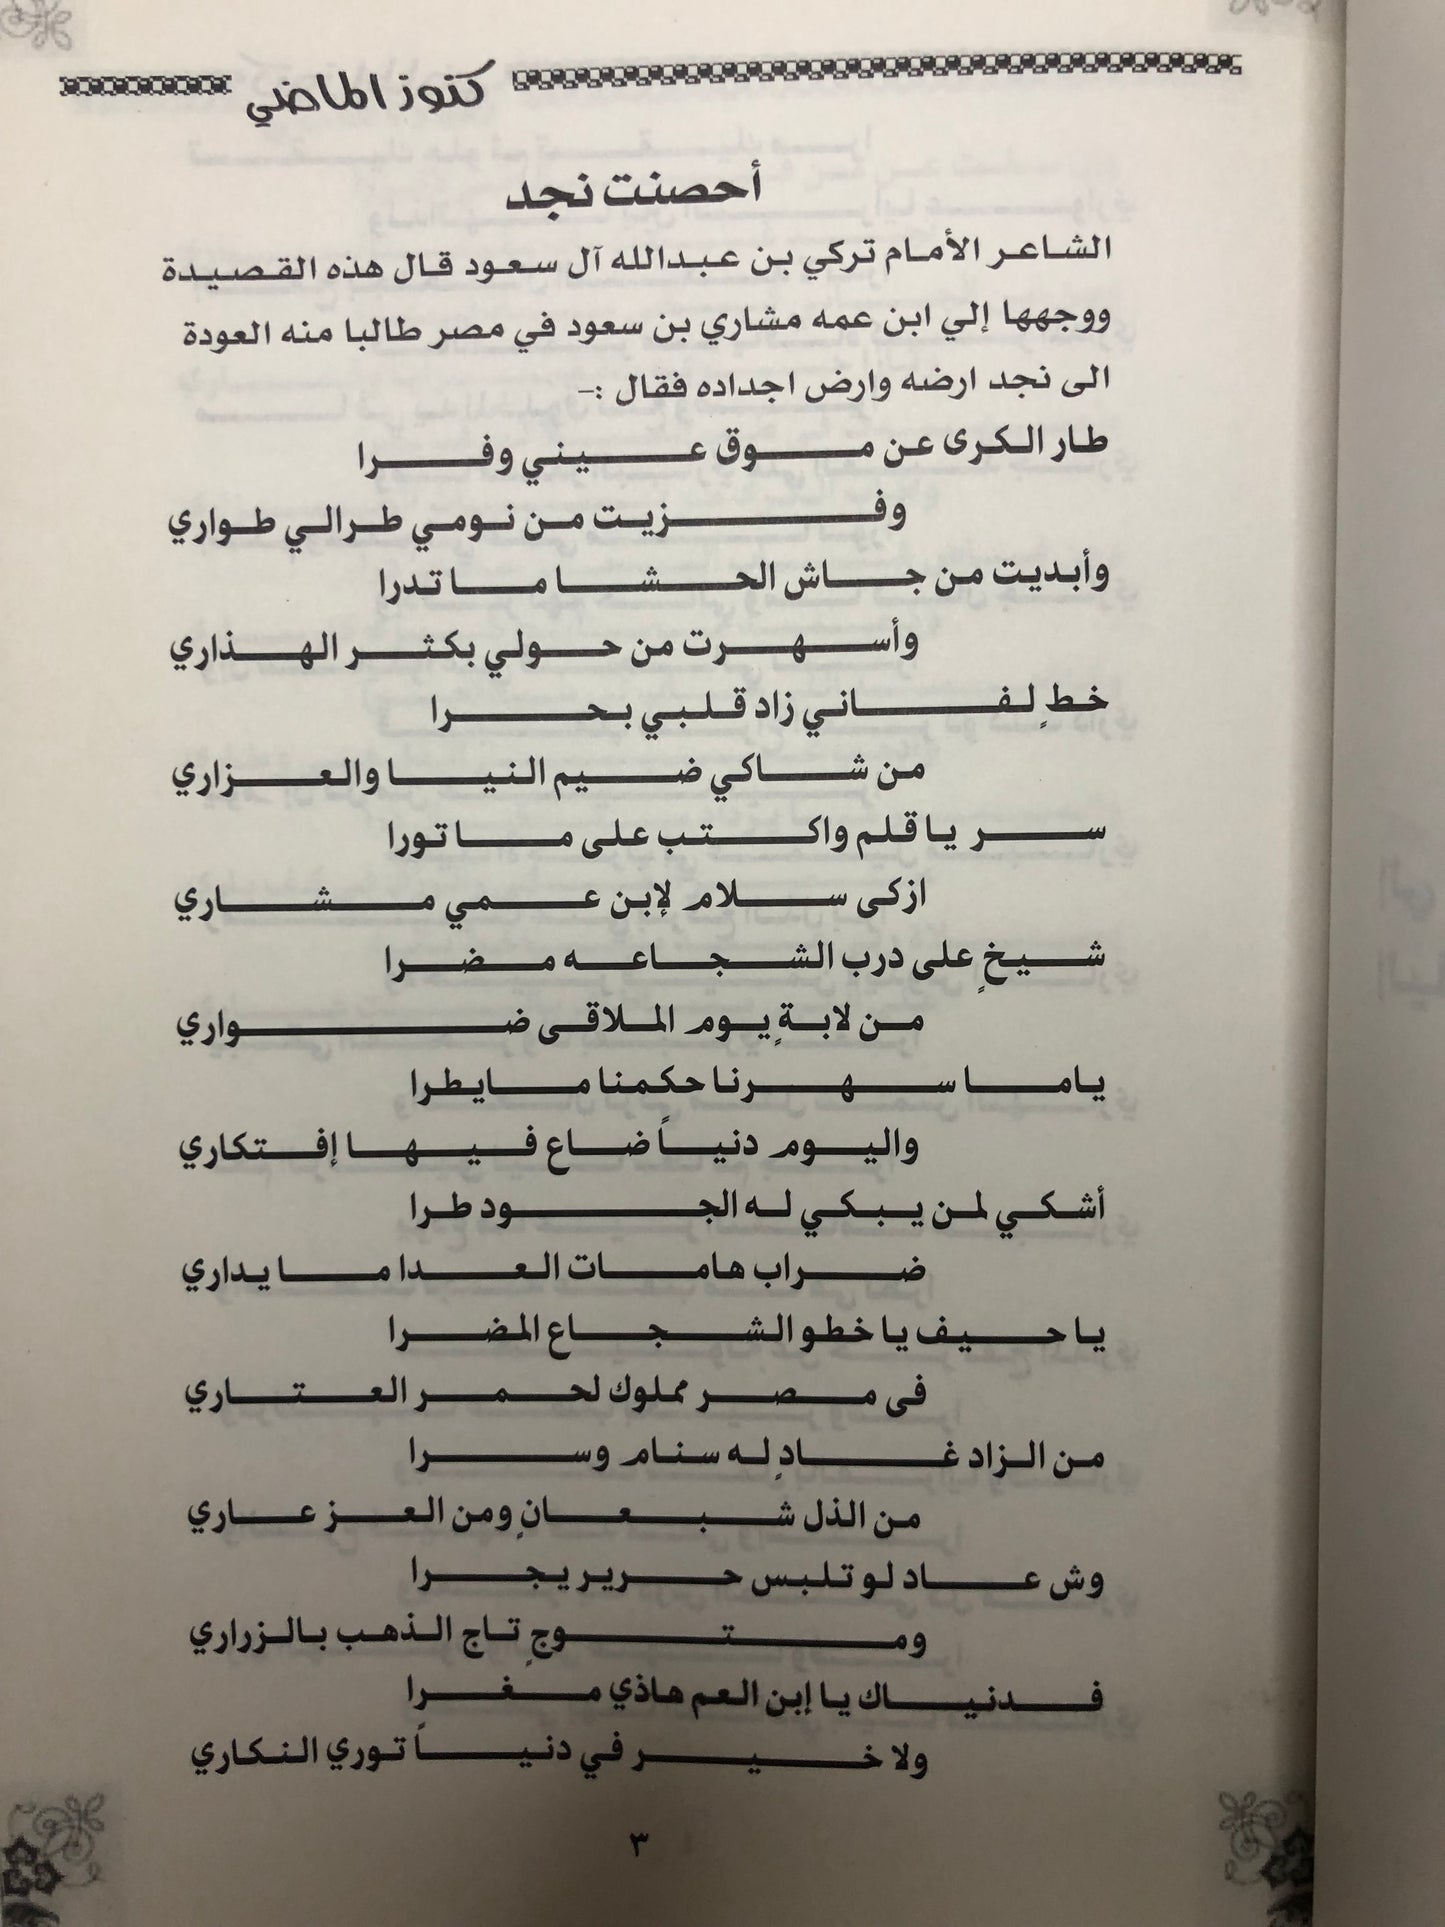 كنوز الماضي
أحصنت نجد
الشاعر الأمام تركي بن عبدالله آل سعود قال هذه القصيدة
ووجهها إلي ابن عمه مشاري بن سعود في مصر طالبا منه العودة
الى نجد ارضه وارض اجداده فقال :–
طار الكرى عن موق عيني وفرا
وفزيت من نومي طرالي طواري
وأبديت من جاش الحشا ما تدرا
وأسهرت من حولي بكثر الهذاري
خطٍ لفاني زاد قلبي بحرا
من شاكي ضيم النيا والعزاري
سر يا قلم واكتب على ما تورا
ازكى سلام لإبن عمي مشاري
شيخٍ على درب الشجاعه مضرا
من لابةٍ يوم الملاقى ضواري
ياما سهرنا حكمنا مايطرا
واليوم دنياً ضاع فيها إفتكاري
أشكي لمن يبكي له الجود طرا
ضراب هامات العدا ما يداري
يا حيف يا خطو الشجاع المضرا
فى مصر مملوك لحمر العتاري
من الزاد غادٍ له سنام وسرا
من الذل شبعانٍ ومن العز عاري
وش عاد لو تلبس حرير يجرا
ومتوجٍ تاج الذهب بالزراري
فدنياك يا إبن العم هاذي مغرا
ولا خير في دنياً توري النكاري
٣